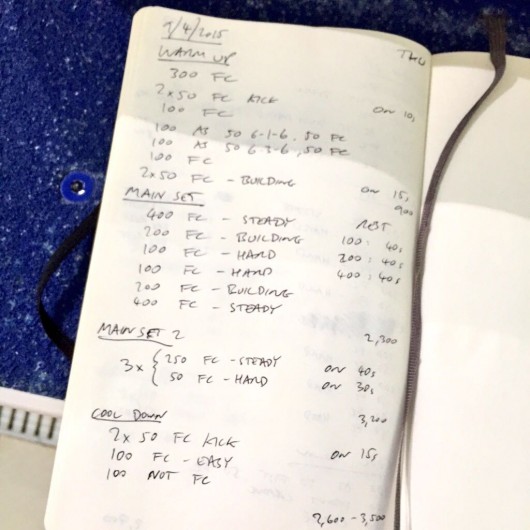 9/4/2015 THU
WARM UP
300 FC
2x50 FC KICK on 10s
100 FC
100 AS 50 6-1-6, 50 FC
100 AS 50 6-3-6, 50 FC
100 FC
2x50 FC - BUILDING on 15s
900
MAIN SET
400 FC - STEADY REST
200 FC - BUILDING 100: 40s
100 FC - HARD 200: 40s
100 FC - HARD 400: 40s
200 FC - BUILDING
400 FC - STEADY
MAIN SET 2 2,300
3x { 250 FC - STEADY on 40s
50 FC - HARD on 30s
3,200
COOL DOWN
2x 50 FC KICK
100 FC - EASY on 15s
100 NOT FC
2,600 - 3,500